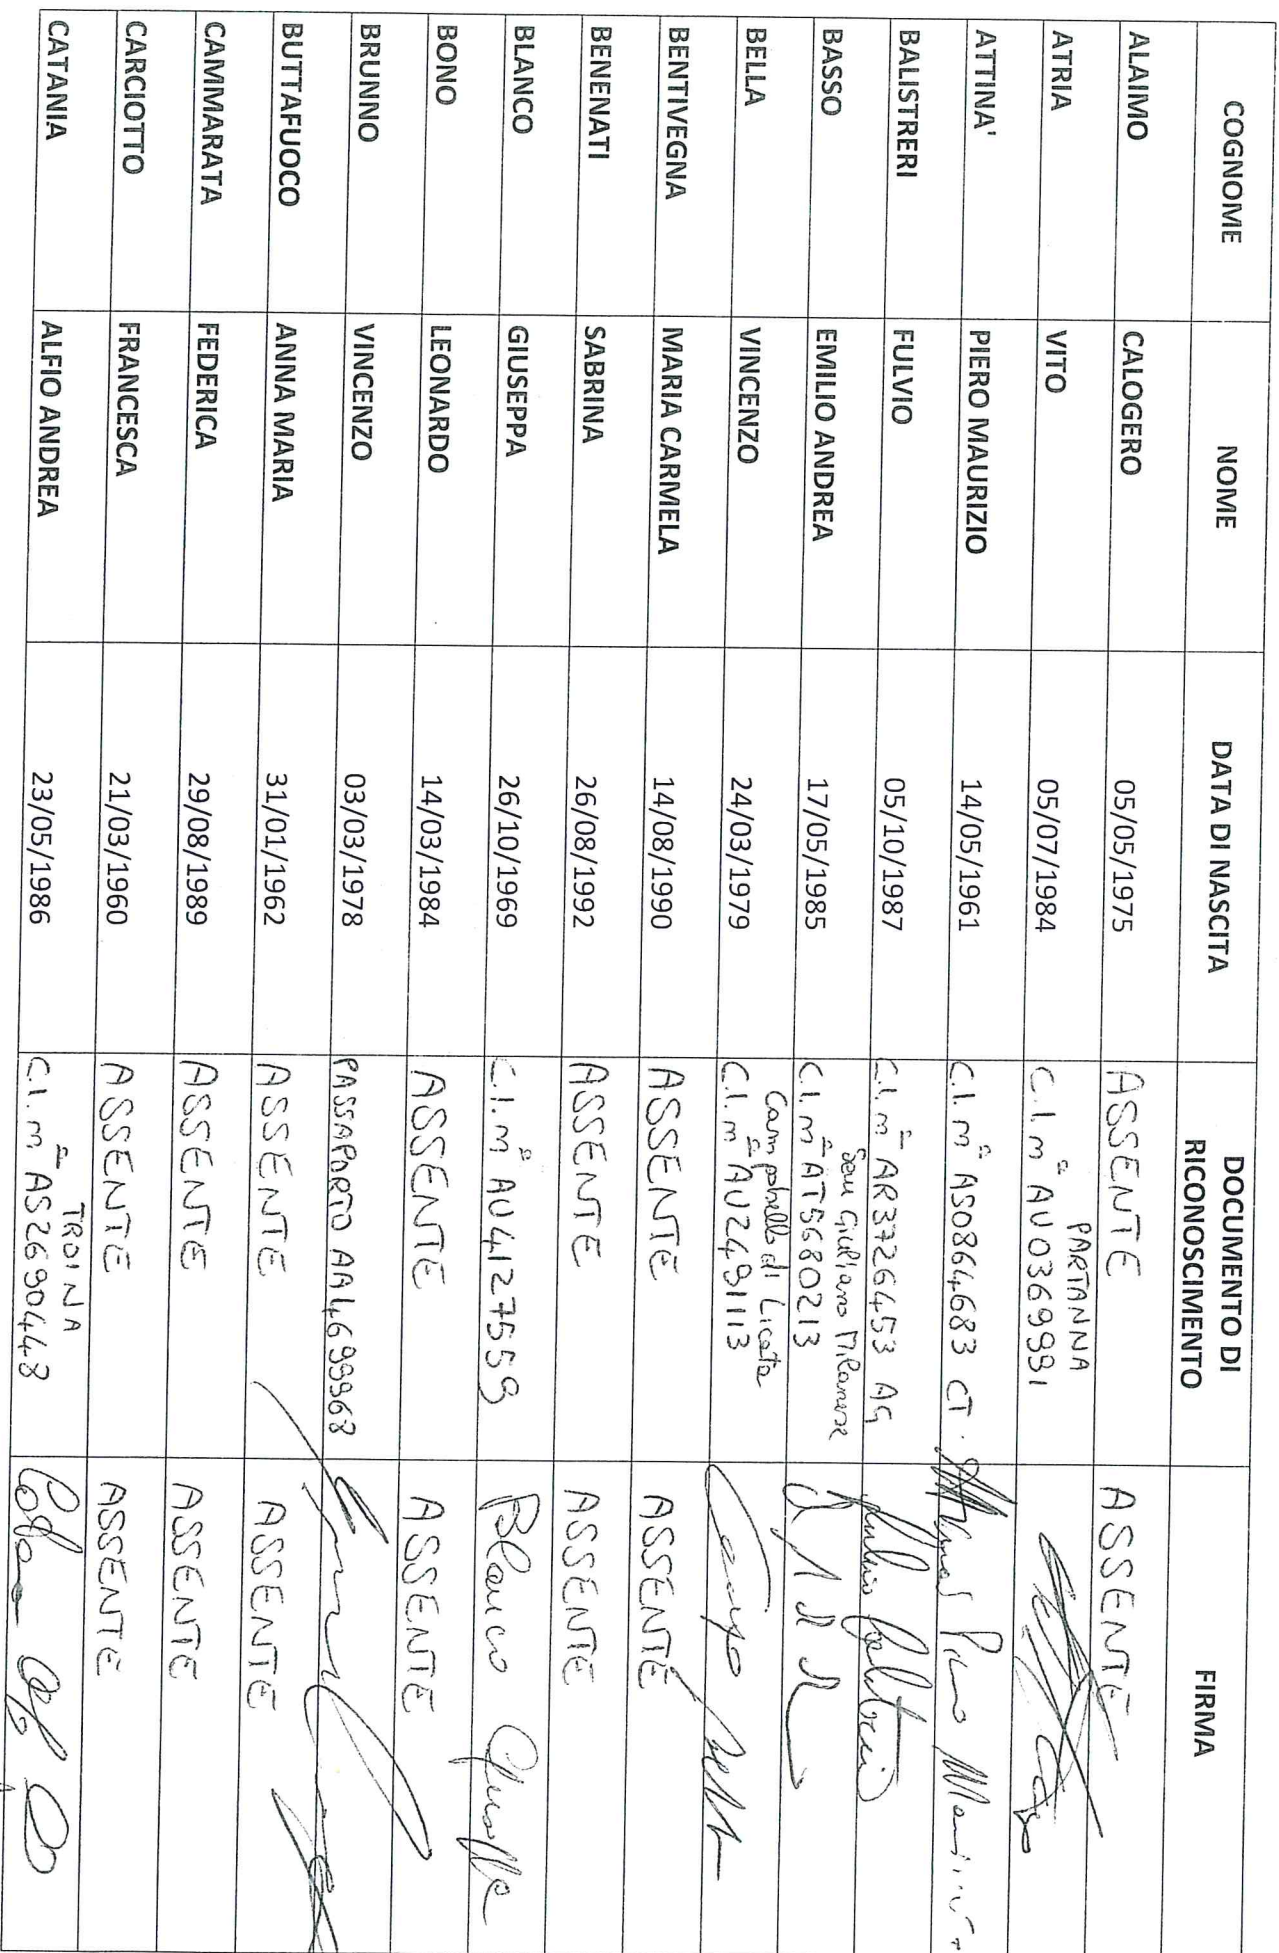 COGNOME NOME DATA DI NASCITA DOCUMENTO DI RICONOSCIMENTO FIRMA
ALAIMO CALOGERO 05/05/1975 ASSENTE ASSENTE
PARTANNA
ATRIA VITO 05/07/1984 C.I. n° AU0369991
ATTINA' PIERO MAURIZIO 14/05/1961 C.I. n° AS0864683 CT.
BALISTRERI FULVIO 05/10/1987 C.I. n° AR3726453 AG
San Giuliano Milanese
BASSO EMILIO ANDREA 17/05/1985 C.I. n° AT5680213
Campobello di Licata
BELLA VINCENZO 24/03/1979 C.I. n° AU2491113
BENTIVEGNA MARIA CARMELA 14/08/1990 ASSENTE ASSENTE
BENENATI SABRINA 26/08/1992 ASSENTE ASSENTE
BLANCO GIUSEPPA 26/10/1969 C.I. n° AU4127559 Blanco Giuseppa
BONO LEONARDO 14/03/1984 ASSENTE ASSENTE
BRUNNO VINCENZO 03/03/1978 PASSAPORTO AA4699968
BUTTAFUOCO ANNA MARIA 31/01/1962 ASSENTE ASSENTE
CAMMARATA FEDERICA 29/08/1989 ASSENTE ASSENTE
CARCIOTTO FRANCESCA 21/03/1960 ASSENTE ASSENTE
TROINA
CATANIA ALFIO ANDREA 23/05/1986 C.I. n° AS2690448